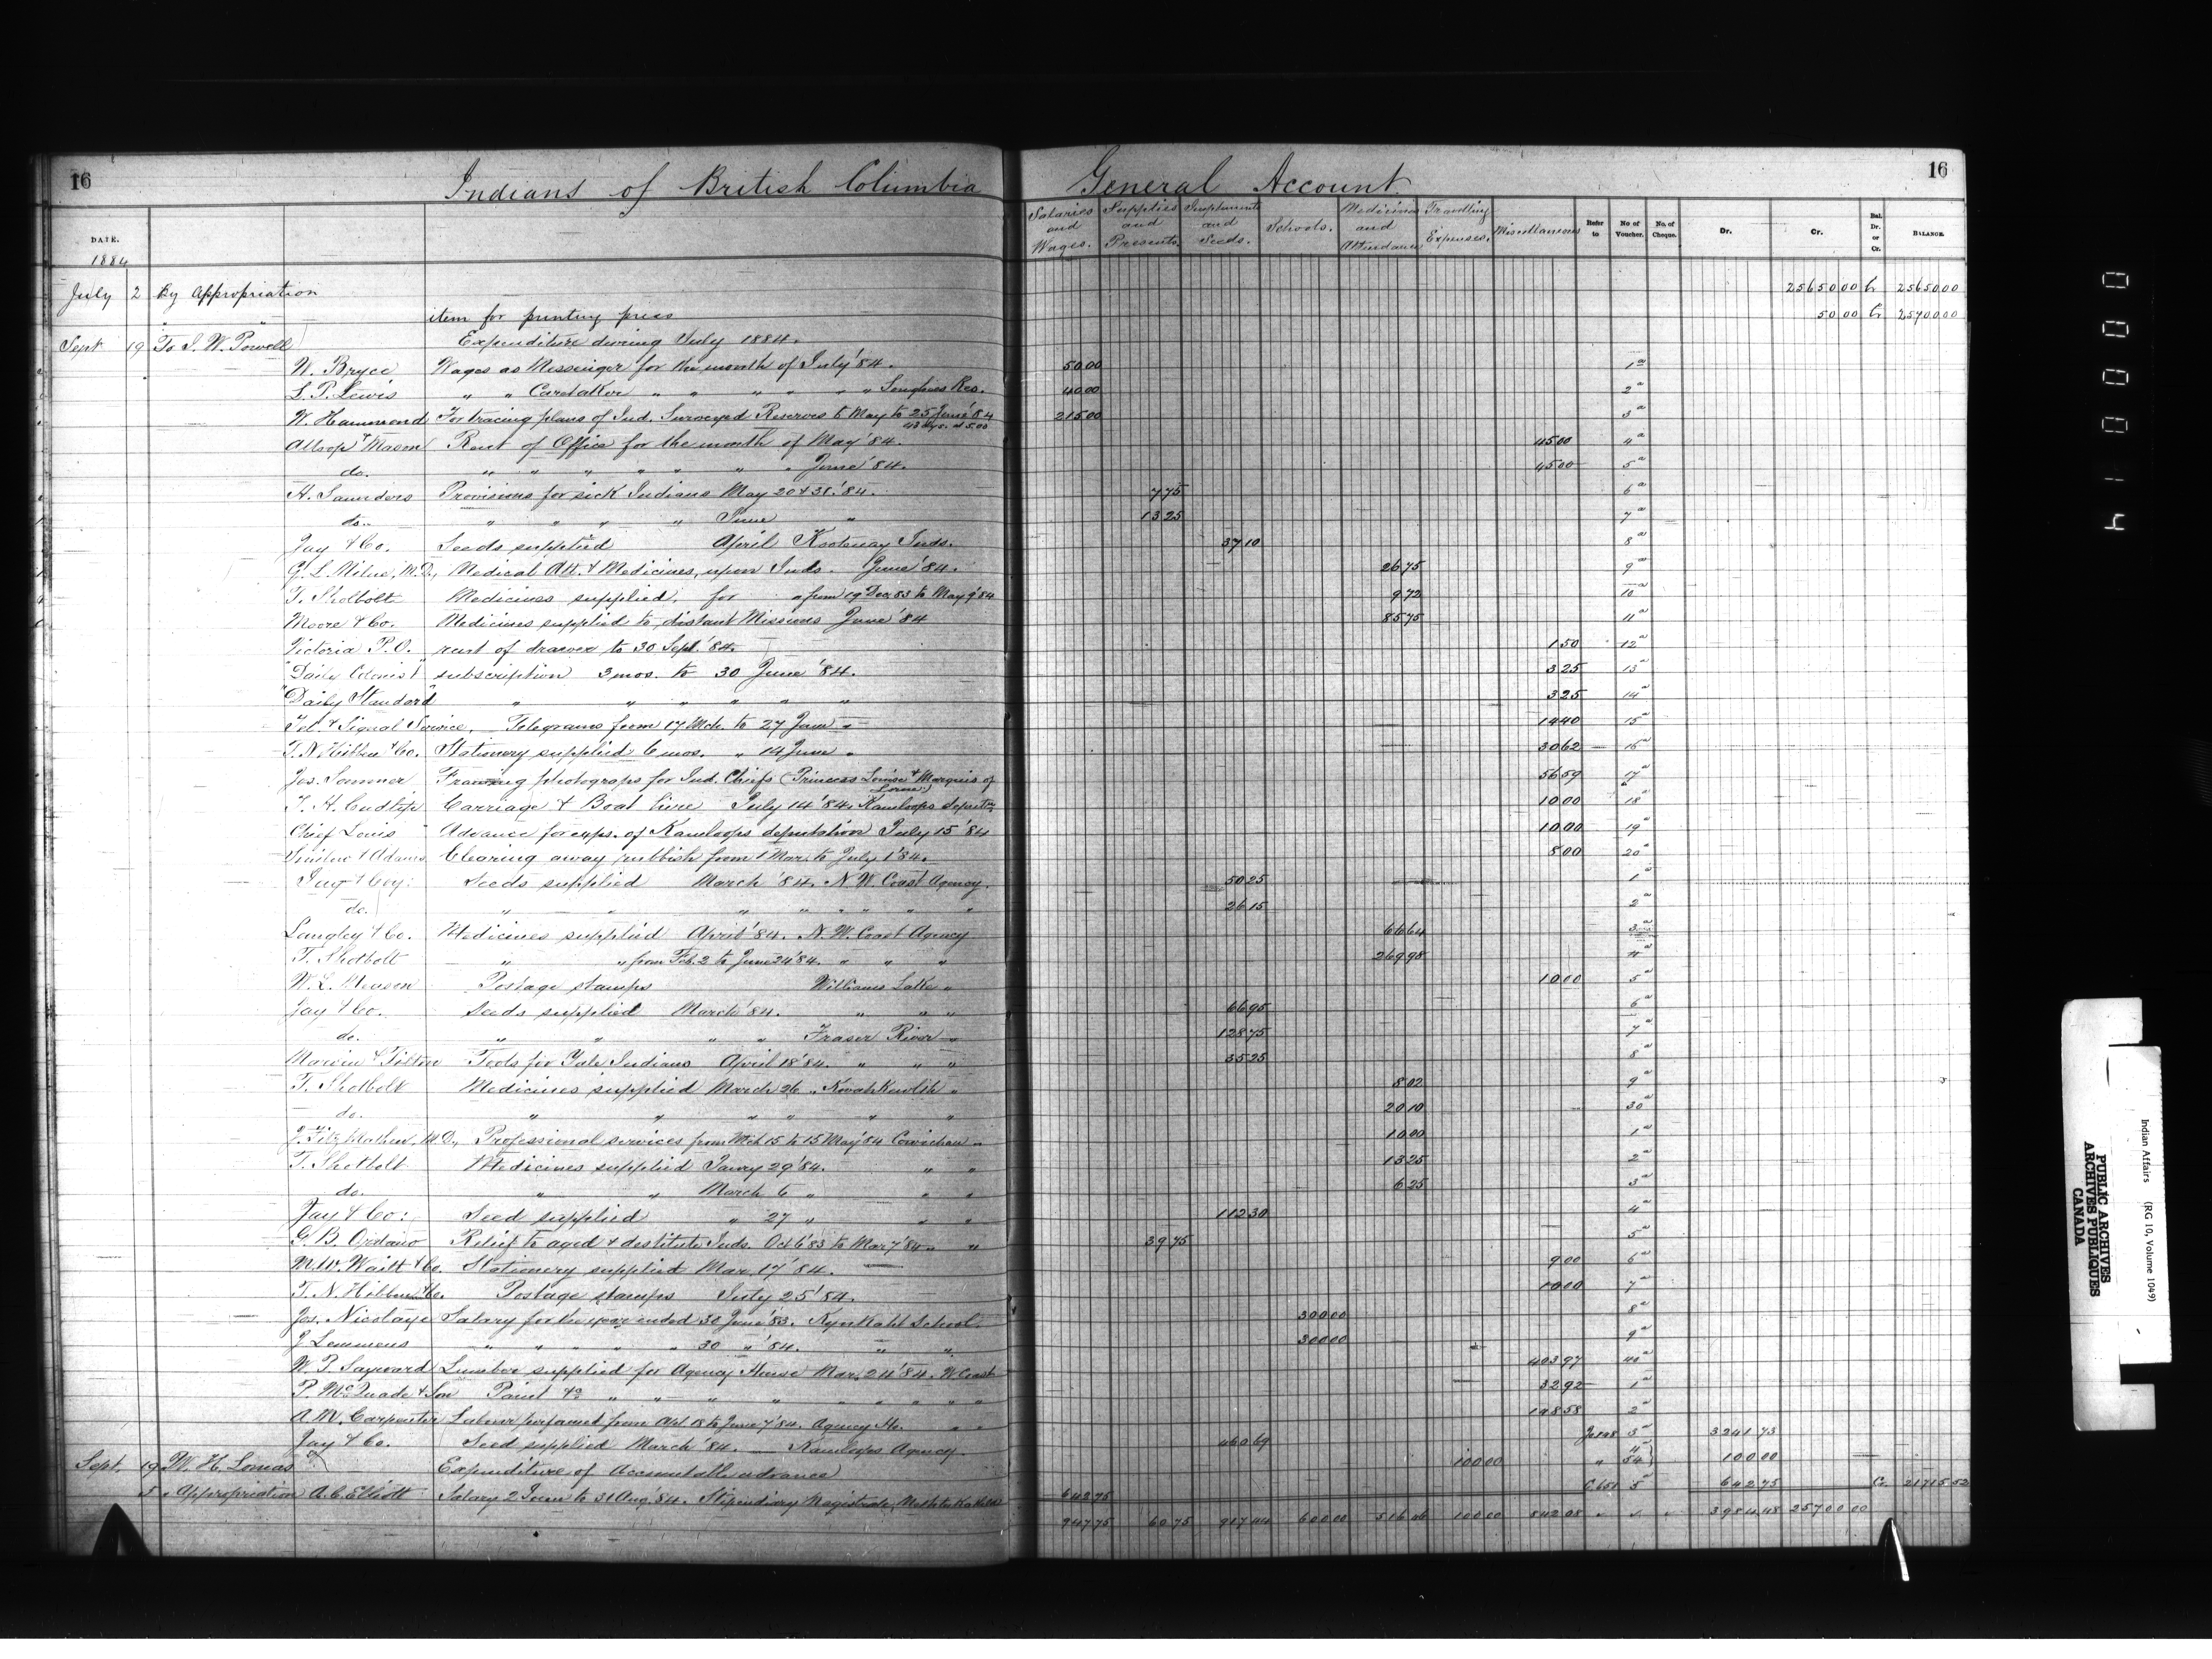 16 Indians of British Columbia General Account 16
DATE. Salaries and Wages. Supplies and Presents. Implements and Seeds. Schools. Medicines and Attendance Travelling Expenses. Miscellaneous Refer to No of Voucher. No. of Cheque. Dr. Cr. Bal. Dr. or Cr. BALANCE
1884
July 2 By Appropriation 25650 00 Cr 25650 00
" " item for printing press 50 00 Cr 25700 00
Sept 19 To I. W. Powell Expenditure during July 1884.
W. Bryce Wages as Messenger for the month of July '84. 50 00 1
L. P. Lewis " " Caretaker " " " " " " Songhees Res. 40 00 2
W. Hammond For tracing plans of Ind. Surveyed Reserves 6 May to 25 June '84 215 00 3
43 dys. at 5.00
Allsop & Mason Rent of Office for the month of May '84. 45 00 4
do. " " " " " " " June '84. 45 00 5
H. Saunders Provisions for sick Indians May 20 & 31. '84. 7 75 6
do. " " " " June " 13 25 7
Jay & Co. Seeds supplied April Kootenay Inds. 37 10 8
G. L. Milne, M.D., Medical Att. & Medicines, upon Inds. June '84. 26 75 9
T. Shotbolt Medicines supplied, for " from 19 Dec 83 to May 9 '84 9 72 10
Moore & Co. Medicines supplied to distant Missions June '84 85 75 11
Victoria P.O. rent of drawer to 30 Sept. '84. 1 50 12
"Daily Colonist" subscription 3 mos. to 30 June '84. 3 25 13
"Daily Standard" " " " " " " 3 25 14
Tel. & Signal Service, Telegrams from 17 Mch. to 27 June " 14 40 15
T. N. Hibben & Co. Stationery supplied 6 mos. " 14 June " 30 62 16
Jos. Sommer Framing photograps for Ind. Chiefs (Princess Louise & Marquis of Lorne) 56 59 17
T. H. Cudlip Carriage & Boat hire July 14 '84. Kamloops deputn. 10 00 18
Chief Louis Advance for exps. of Kamloops deputation July 15 '84 10 00 19
& Adams Clearing away rubbish from 1 Mar. to July 1 '84. 5 00 20
Jay & Coy: Seeds supplied March '84. N. W. Coast Agency. 50 25 1
do. " " " " " " " " 26 15 2
Langley & Co. Medicines supplied April '84. N. W. Coast Agency 66 64 3
T. Shotbolt " " from Feb. 2 to June 24 '84. " " " 269 98 4
W. L. Postage stamps Williams Lake " 10 00 5
Jay & Co. Seeds supplied March '84. " " " 66 95 6
do. " " " " Fraser River " 128 75 7
Marvin & Tilton Tools for Yale Indians April 18 '84. " " " 35 25 8
T. Shotbolt Medicines supplied March 26 " Kwawkewlth " 8 02 9
do. " " " " " " 20 10 30
M.D., Professional services from Mch 15 to 15 May '84 Cowichan " 10 00 1
T. Shotbolt Medicines supplied Janry 29 '84. " " 13 25 2
do. " " March 6 " " " 6 25 3
Jay & Co: Seed supplied " 27 " " " 112 30 4
G. B. Ordano Relief to aged & destitute Inds. Oct 6 '83 to Mar 7 '84 " " 39 75 5
M. W. Waitt & Co. Stationery supplied Mar. 17 '84. 9 00 6
T. N. Hibben & Co. Postage stamps July 25 '84. 10 00 7
Jos. Nicolaye Salary for the year ended 30 June '83. School. 300 00 8
J. Lemmens " " " " " 30 " '84. " " 300 00 9
W. P. Sayward Lumber supplied for Agency House Mar. 24 '84. W. Coast 403 97 40
P. McQuade & Son Paint &c " " " " " " " " 32 92 1
A. W. Carpenter Labour performed from Apl 18 to June 7 '84. Agency Ho. " " 148 58 2
Jay & Co. Seed supplied March '84. Kamloops Agency. 460 69 3 3241 73
Sept. 19 W. H. Lomas Expenditure of Accountable advance 100 00 " 100 00
5 " Appropriation A. C. Elliott Salary 2 June to 31 Aug. '84. Stipendiary Magistrate, Methlakahtla 642 75 C.651 5 642 75 Cr. 21715 52
947 75 60 75 917 44 600 00 516 46 100 00 842 08 3984 48 25700 00
0 0 0 0 1 4
Indian Affairs (RG 10, Volume 1049)
PUBLIC ARCHIVES
ARCHIVES PUBLIQUES
CANADA